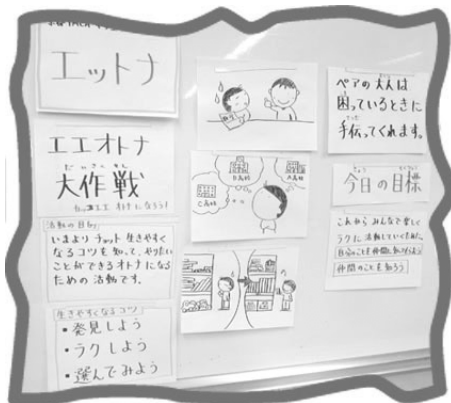 エットナ
エエオトナ
だいさくせん
大作戦
エエ オトナ になろう!
活動の目的
いまより チョット 生きやすく
なるコツ を 知って、やりたい
ことができるオトナになる
ための 活動です。
生きやすくなるコツ
・発見しよう
・ラクしよう
・選んでみよう
D高校
A高校
C高校
ペアの大人は
困っているときに
手伝ってくれます。
今日の目標
これから みんなで楽しく
ラクに活動していくために
仲間のことを知ろう